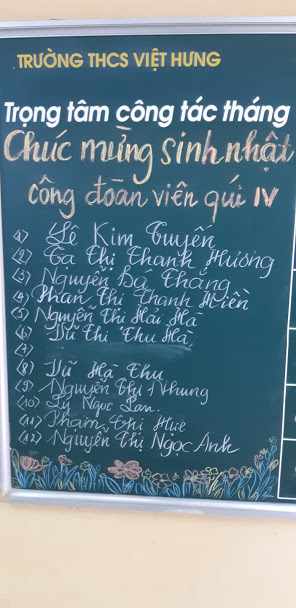 TRƯỜNG THCS VIỆT HƯNG
Trọng tâm công tác tháng
Chúc mừng sinh nhật
công đoàn viên quí IV
<1> Lê Kim Tuyến
<2> Tạ Thị Thanh Hương
<3> Nguyễn Bá Thắng
<4> Phan Thị Thanh Hiền
<5> Nguyễn Thị Hải Hà
<6> Vũ Thị Thu Hà
<7>
<8> Vũ Hà Thu
<9> Nguyễn Thị Nhung
<10> Ngọc Lan
<11> Phạm Thị Huê
<12> Nguyễn Thị Ngọc Anh